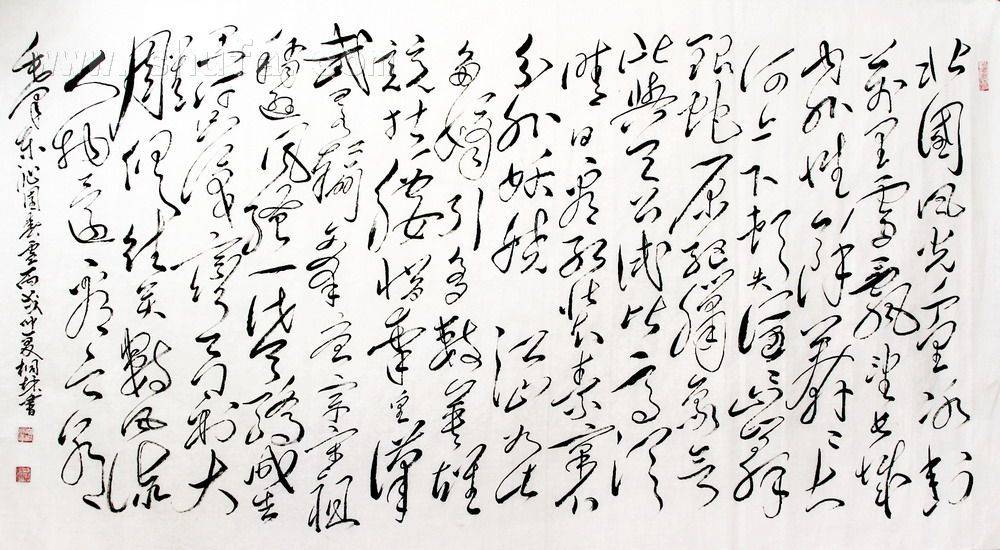 北國风光千里冰封
万里雪飘望长城
内外惟余莽莽大
河上下顿失滔滔山舞
银蛇原驰蜡象欲
與天公试比高须
晴日看红装素裹
分外妖娆江山如此
多娇引多数英雄
竞折腰惜秦皇汉
武略输文采唐宗宋祖
稍逊风骚一代天骄成吉
思汗只识弯弓射大
雕俱往矣数风流
人物还看今朝
毛泽东沁园春雪丙戌仲夏桐林書